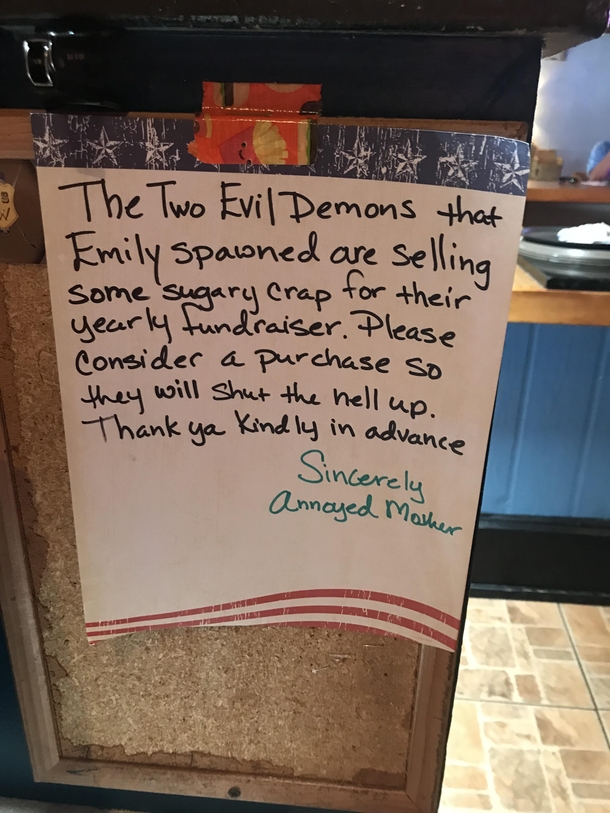 The Two Evil Demons that
Emily spawned are selling
some sugary crap for their
yearly fundraiser. Please
Consider a purchase so
they will shut the hell up.
Thank ya kindly in advance
Sincerely
Annoyed Mother